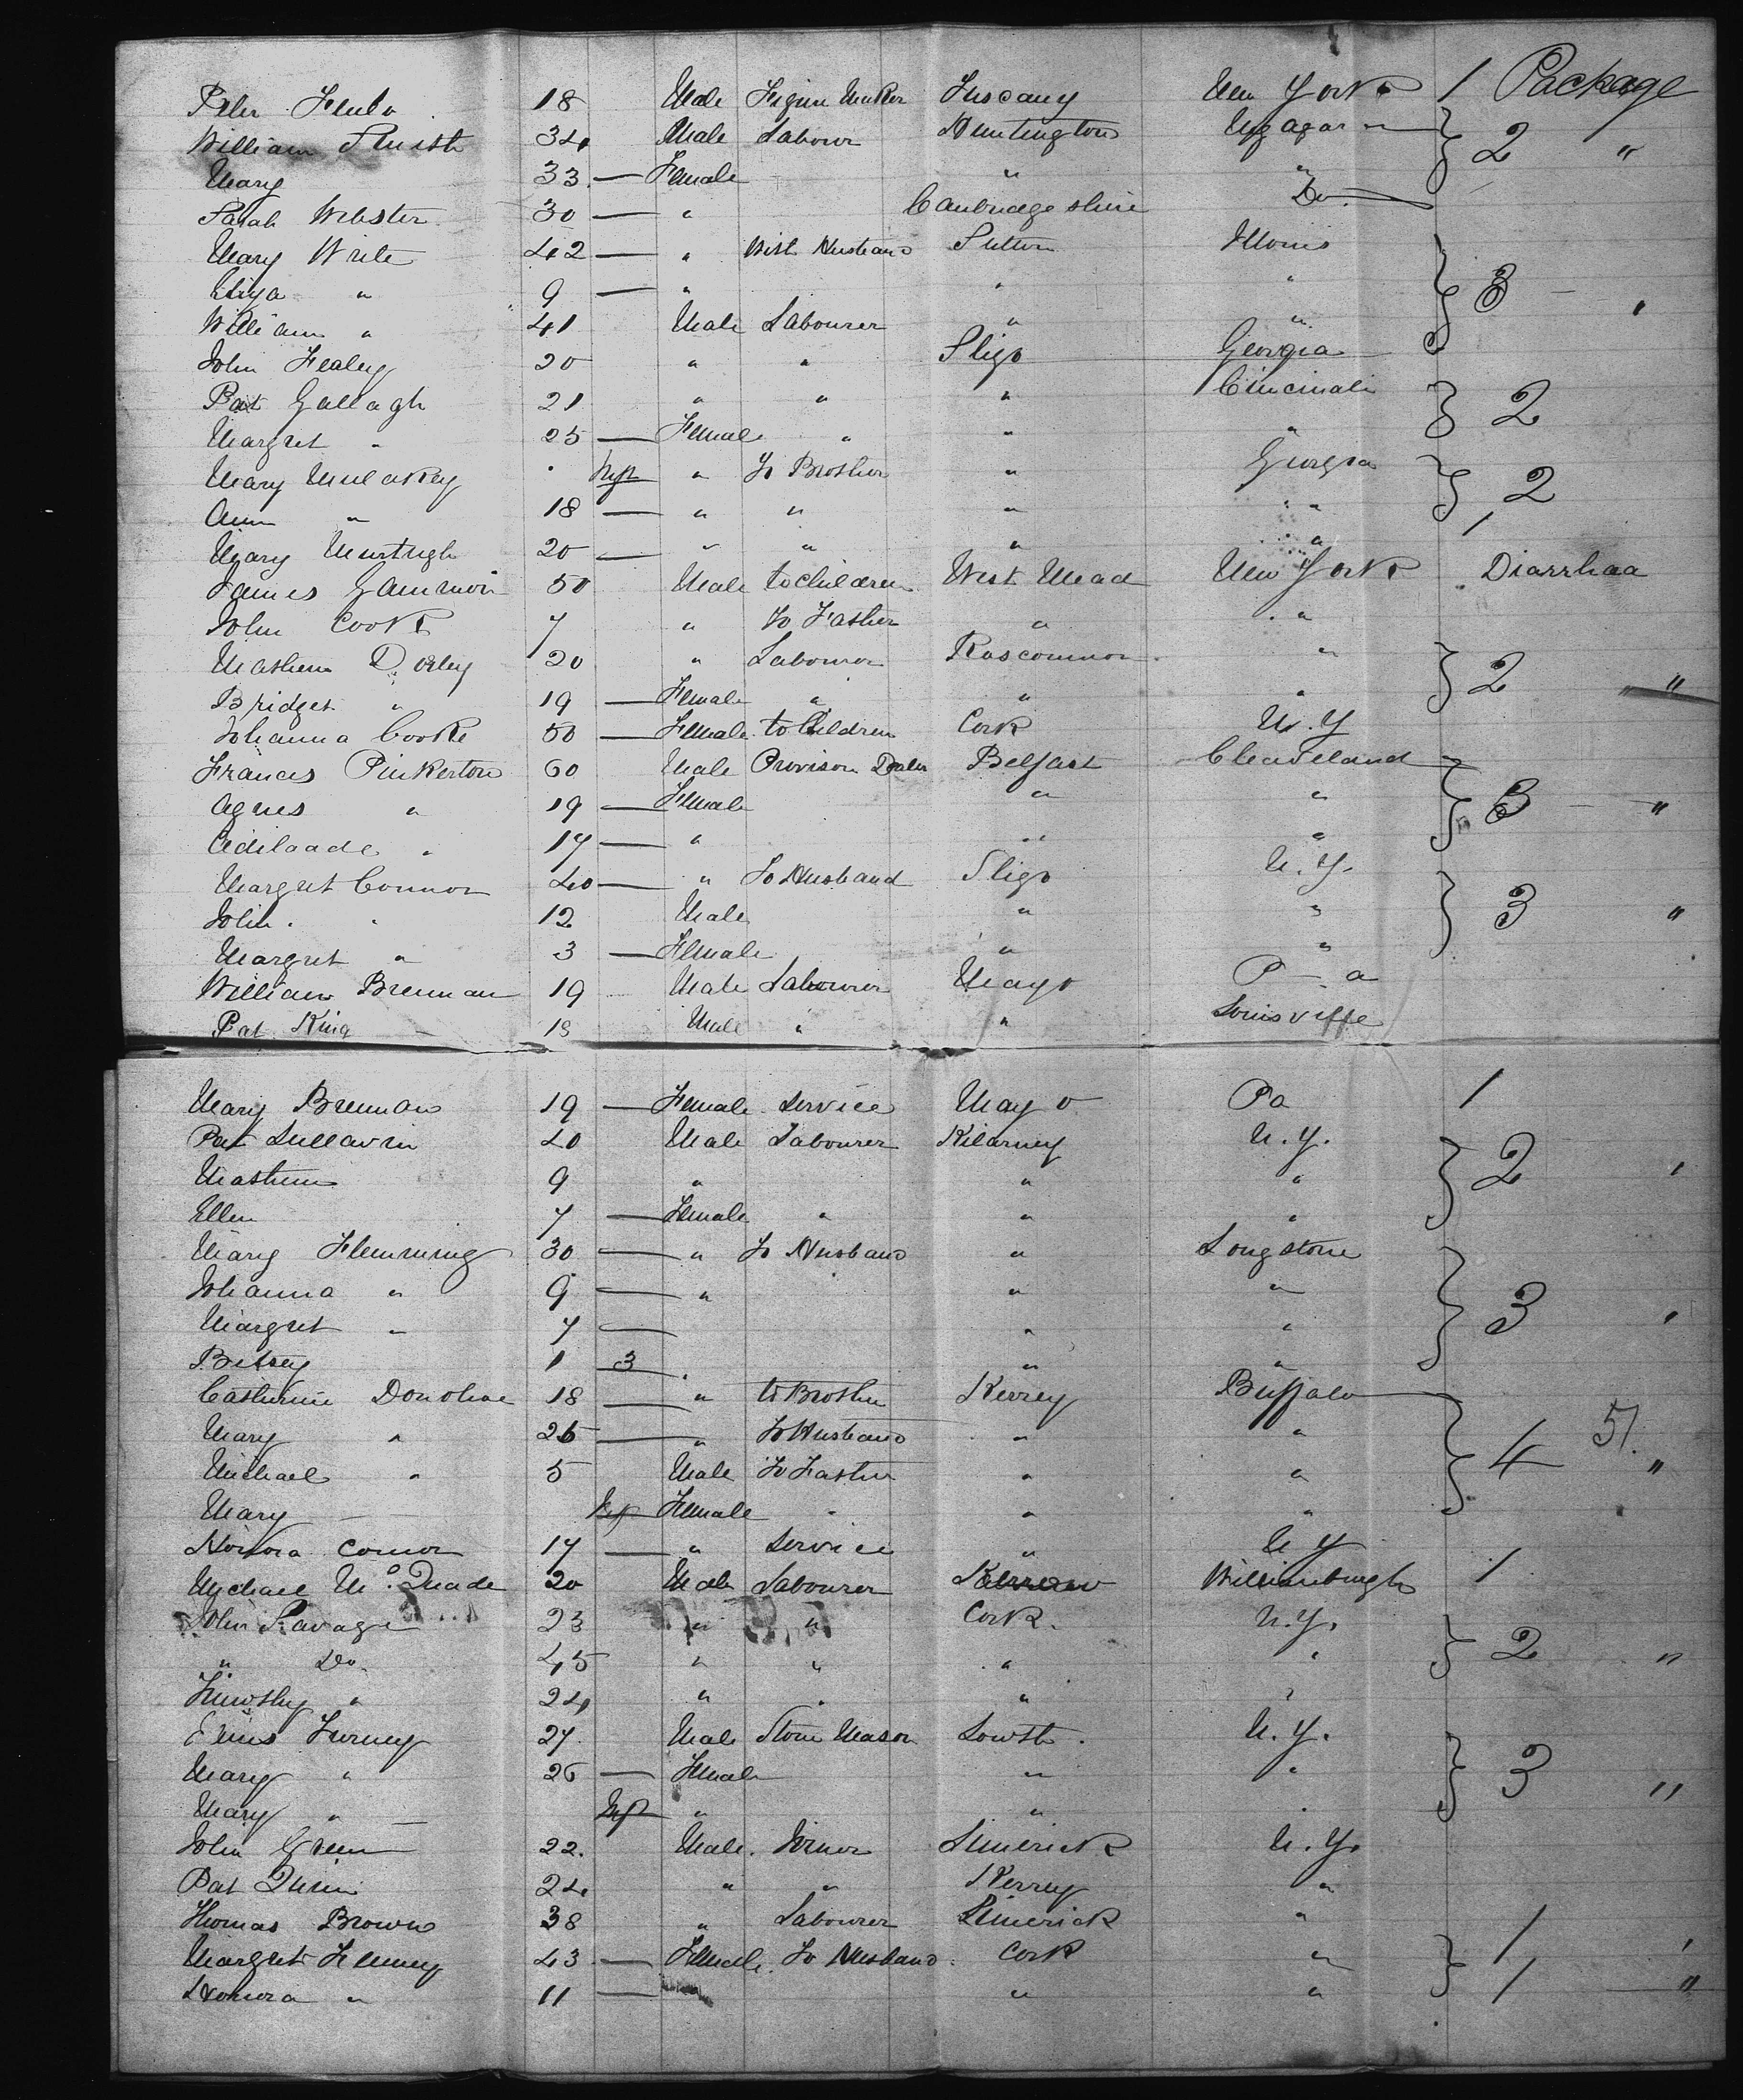 Peter 18 Male Figure Maker Tuscany New York 1 Package
William Smith 34 Male Labour Huntington 2 "
Mary 33 — Female " "
Sarah Webster 30 — " Cambridge shire Do.
Mary Write 42 — " With Husband Sutton Illonis
Eliza " 9 — " " " 3 "
William " 41 Male Labourer " "
John Healey 20 " " Sligo Georgia
Pat Gallagh 21 " " " Cincinati 2
Margret " 25 — Female " " "
Mary Mularkey Inft " To Brother " Georgia 2
Ann " 18 — " " " "
Mary Murtagh 20 — " " " " 1
James Gammon 50 Male to children West Mead New York Diarrhaa
John Cook 7 " To Father " "
Mathew Dorley 20 " Labourer Roscommon " 2 "
Bridget " 19 — Female " " "
Johanna Cooke 50 — Female to Children Cork N.Y
Frances Pinkerton 60 Male Provison Dealer Belfast Cleaveland
Agnes " 19 — Female " " 3 "
Adilaade " 17 — " " "
Margret Connor 40 — " To Husband Sligo N.Y.
John " 12 Male " " 3 "
Margret " 3 — Female " "
William Brennan 19 Male Labourer Mayo P — a
Pat King 19 Male " " Louisville
Mary Brennan 19 — Female Service Mayo Pa 1
Pat Sullavin 40 Male Labourer Kilarney N.Y.
Mathew 9 " " " 2 "
Ellen 7 — Female " " "
Mary Flemming 30 — " To Husband " Longstone
Johanna " 9 — " " "
Margret " 7 — " " 3 "
Betsey 1 3 " "
Catherine Donohoe 18 — " to Brother Kerrey Buffalo
Mary " 26 — " To Husband " " 51.
Michael " 5 Male To Father " " 4 "
Mary — Inft Female " " "
Honora Connor 17 — " Service " N Y
Michael Mc.Quade 20 Male Labourer Williambugh 1
John Savage 23 " " Cork. N.Y.
" Do. 45 " " " " 2 "
Timothy " 24 " " " "
Turney 27. Male Stone Mason Lowth. N.Y.
Mary " 26 — Female " " 3 "
Mary " — Inft " " "
John Green 22. Male. Joiner Limerick N.Y.
Pat Quin 24 " " Kerrey "
Thomas Brown 38 " Labourer Limerick " 1
Margret 43 — Female. To Husband. Cork " "
Honora " 11 — " " 1 "